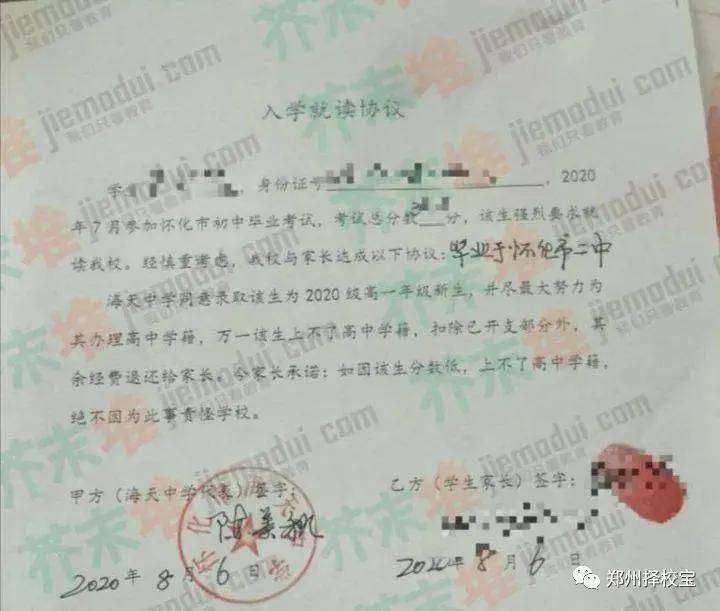 入学就读协议
学生，身份证号，2020
年7月参加怀化市初中毕业考试，考试总分数分，该生强烈要求就
读我校。经慎重考虑，我校与家长达成以下协议：毕业于怀化市二中
海天中学同意录取该生为2020级高一年级新生，并尽最大努力为
其办理高中学籍，万一该生上不了高中学籍，扣除已开支部分外，其
余经费退还给家长。今家长承诺：如因该生分数低，上不了高中学籍，
绝不因为此事责怪学校。
甲方（海天中学代表）签字： 乙方（学生家长）签字：
2020年8月6日 2020年8月6日
芥末堆 jiemodui.com
我们只看教育
郑州择校宝